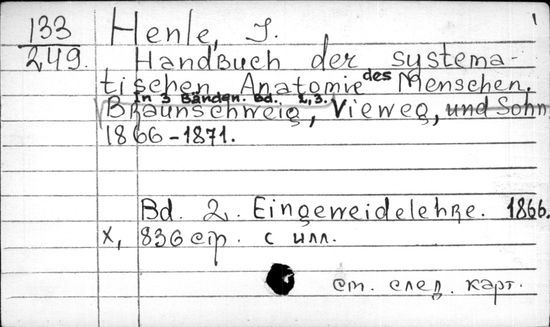 133
249.
Henle, J.
1
Handbuch der systema-
tischen Anatomie des Menschen.
In 3 Bänden. Bd. 2, 3.
Braunschweig, Vieweg, und Sohn
1866-1871.
Bd. 2. Eingeweidelehre. 1866.
X, 836 стр. с илл.
см. след. карт.